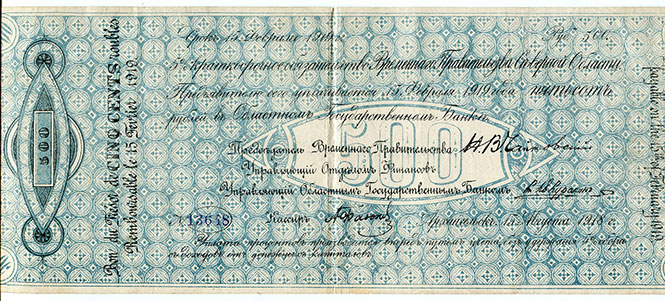 Срокъ 15 Февраля 1919 г. Руб. 500.
5% краткосрочное обязательство Временнаго Правительства Сѣверной Области.
Предъявителю сего уплачивается 15 Февраля 1919 года пятьсотъ
рублей въ Областномъ Государственномъ Банкѣ.
500
Предсѣдатель Временнаго Правительства
Управляющій Отдѣломъ Финансовъ
Управляющій Областнымъ Государственнымъ Банкомъ
№ 13648 Кассиръ Архангельскъ, 15 Августа 1918 г.
Уплата процентовъ производится впередъ путемъ учета, съ удержаніемъ 5% сбора
съ доходовъ отъ денежныхъ капиталовъ.
Bon du Trésor de CINQ CENTS roubles
Remboursable le 15 Février 1919.
500